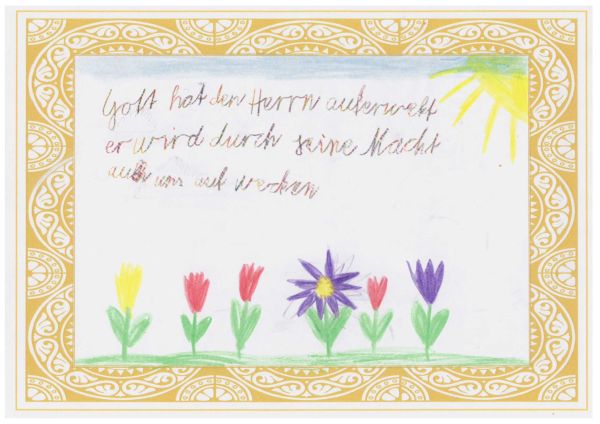 Gott hat den Herrn auferwekt
er wird durch seine Macht
auch uns auf wecken